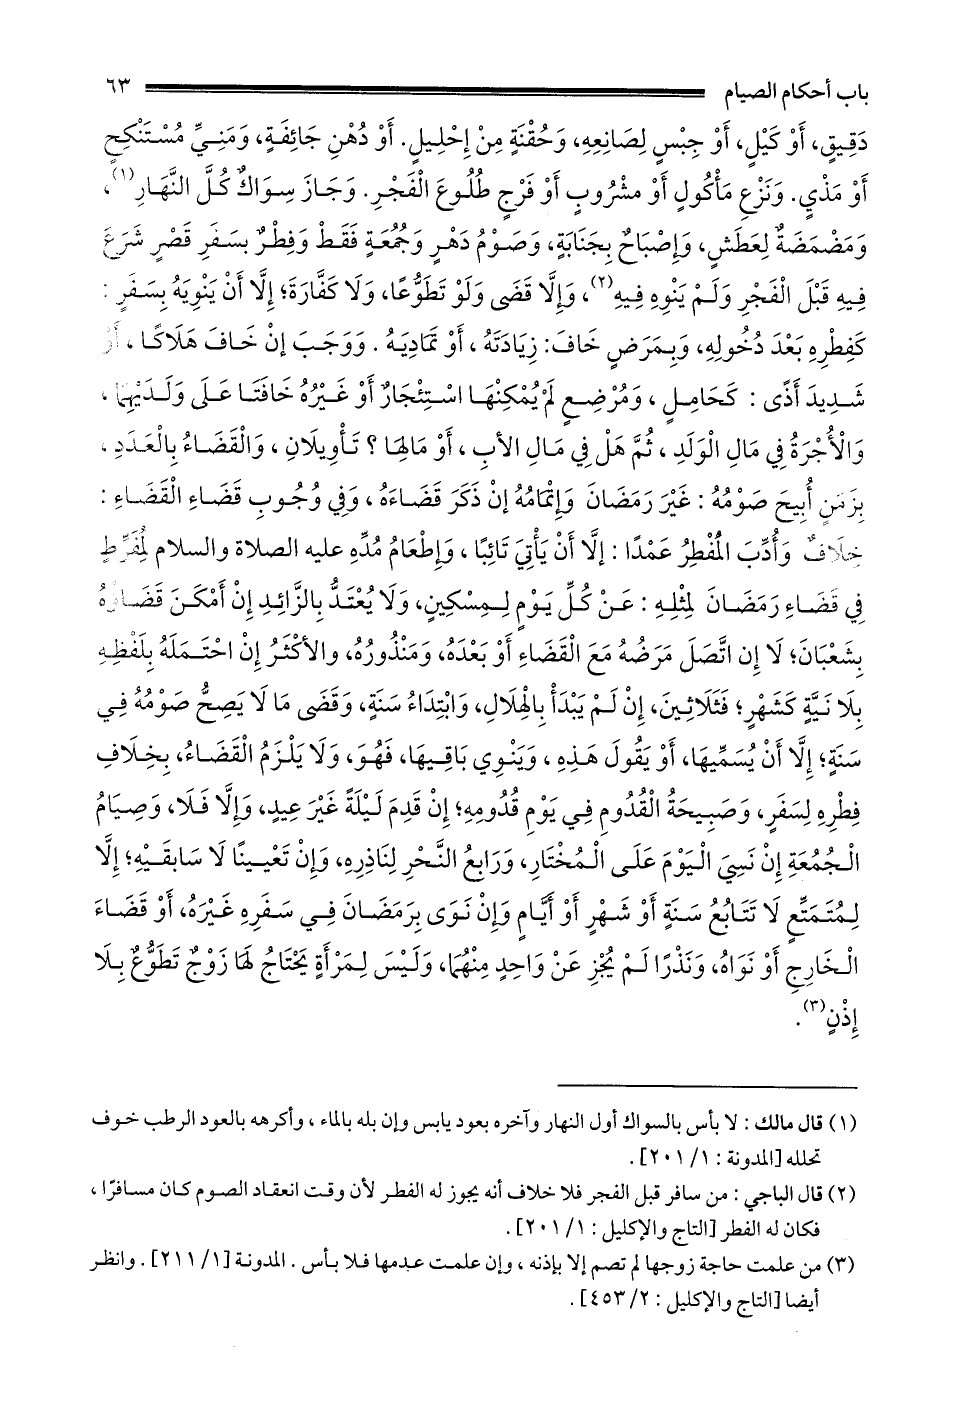 باب أحكام الصيام ٦٣
دَقيقٍ، أَوْ كَيْلٍ، أَوْ جِبْسٍ لِصَانِعِهِ، وَحُقْنَةٍ مِنْ إِحْلِيلٍ. أَوْ دُهْنِ جَائِفَةٍ، وَمَنِيِّ مُسْتَنْكِحٍ
أَوْ مَذْيٍ. وَنَزْعِ مَأْكُولٍ أَوْ مَشْرُوبٍ أَوْ فَرْجٍ طُلُوعَ الْفَجْرِ. وَجَازَ سِوَاكٌ كُلَّ النَّهَارِ(١)،
وَمَضْمَضَةٌ لِعَطَشٍ، وَإِصْبَاحٌ بِجَنَابَةٍ، وَصَوْمُ دَهْرٍ وَجُمُعَةٍ فَقَطْ وَفِطْرٌ بِسَفَرِ قَصْرٍ شَرَعَ
فِيهِ قَبْلَ الْفَجْرِ وَلَمْ يَنْوِهِ فِيهِ(٢)، وَإِلَّا قَضَى وَلَوْ تَطَوُّعًا، وَلَا كَفَّارَةَ؛ إِلَّا أَنْ يَنْوِيَهُ بِسَفَرٍ :
كَفِطْرِهِ بَعْدَ دُخُولِهِ، وَبِمَرَضٍ خَافَ: زِيَادَتَهُ ، أَوْ تَمَادِيَهُ . وَوَجَبَ إِنْ خَافَ هَلَاكًا ، أَوْ
شَدِيدَ أَذًى : كَحَامِلٍ ، وَمُرْضِعٍ لَمْ يُمْكِنْهَا اسْتِئْجَارٌ أَوْ غَيْرُهُ خَافَتَا عَلَى وَلَدَيْهِمَا ،
وَالْأُجْرَةُ فِي مَالِ الْوَلَدِ ، ثُمَّ هَلْ فِي مَالِ الأَبِ ، أَوْ مَالِهَا ؟ تَأْوِيلَانِ ، وَالْقَضَاءُ بِالْعَدَدِ ،
بِزَمَنٍ أُبِيحَ صَوْمُهُ : غَيْرَ رَمَضَانَ وَإِتْمَامُهُ إِنْ ذَكَرَ قَضَاءَهُ ، وَفِي وُجُوبِ قَضَاءِ الْقَضَاءِ :
خِلَافٌ وَأُدِّبَ الْمُفْطِرُ عَمْدًا : إِلَّا أَنْ يَأْتِيَ تَائِبًا ، وَإِطْعَامُ مُدِّهِ عليه الصلاة والسلام لِمُفَرِّطٍ
فِي قَضَاءِ رَمَضَانَ لِمِثْلِهِ : عَنْ كُلِّ يَوْمٍ لِمِسْكِينٍ، وَلَا يُعْتَدُّ بِالزَّائِدِ إِنْ أَمْكَنَ قَضَاؤُهُ
بِشَعْبَانَ؛ لَا إِن اتَّصَلَ مَرَضُهُ مَعَ الْقَضَاءِ أَوْ بَعْدَهُ، وَمَنْذُورُهُ، والأكْثَرُ إِنْ احْتَمَلَهُ بِلَفْظِهِ
بِلَا نَيَّةٍ كَشَهْرٍ؛ فَثَلَاثِينَ، إِنْ لَمْ يَبْدَأْ بِالْهِلَالِ، وَابْتِدَاءُ سَنَةٍ، وَقَضَى مَا لَا يَصِحُّ صَوْمُهُ فِي
سَنَةٍ؛ إِلَّا أَنْ يُسَمِّيهَا، أَوْ يَقُولَ هَذِهِ ، وَيَنْوِي بَاقِيهَا، فَهُوَ، وَلَا يَلْزَمُ الْقَضَاءُ، بِخِلَافِ
فِطْرِهِ لِسَفَرٍ، وَصَبِيحَةُ الْقُدُومِ فِي يَوْمِ قُدُومِهِ؛ إِنْ قَدِمَ لَيْلَةً غَيْرَ عِيدٍ، وَإِلَّا فَلَا، وَصِيَامُ
الْجُمُعَةِ إِنْ نَسِيَ الْيَوْمَ عَلَى الْمُخْتَارِ، وَرَابِعُ النَّحْرِ لِنَاذِرِهِ، وَإِنْ تَعْيينًا لَا سَابِقَيْهِ؛ إِلَّا
لِمُتَمَتِّعٍ لَا تَتَابُعُ سَنَةٍ أَوْ شَهْرٍ أَوْ أَيَّامٍ وَإِنْ نَوَى بِرَمَضَانَ فِي سَفَرِهِ غَيْرَهُ، أَوْ قَضَاءَ
الْخَارِجِ أَوْ نَوَاهُ، وَنَذْرًا لَمْ يُجْزِ عَنْ وَاحِدٍ مِنْهُمَا، وَلَيْسَ لِمَرْأَةٍ يَحْتَاجُ لَهَا زَوْجٌ تَطَوُّعٌ بِلَا
إِذْنٍ(٣).
(١) قال مالك : لا بأس بالسواك أول النهار وآخره بعود يابس وإن بله بالماء ، وأكرهه بالعود الرطب خوف
تحلله [المدونة : ١/ ٢٠١] .
(٢) قال الباجي : من سافر قبل الفجر فلا خلاف أنه يجوز له الفطر لأن وقت انعقاد الصوم كان مسافرًا ،
فكان له الفطر [التاج والإكليل : ١/ ٢٠١] .
(٣) من علمت حاجة زوجها لم تصم إلا بإذنه ، وإن علمت عدمها فلا بأس . المدونة [١/ ٢١١] . وانظر
أيضا [التاج والإكليل : ٢/ ٤٥٣] .